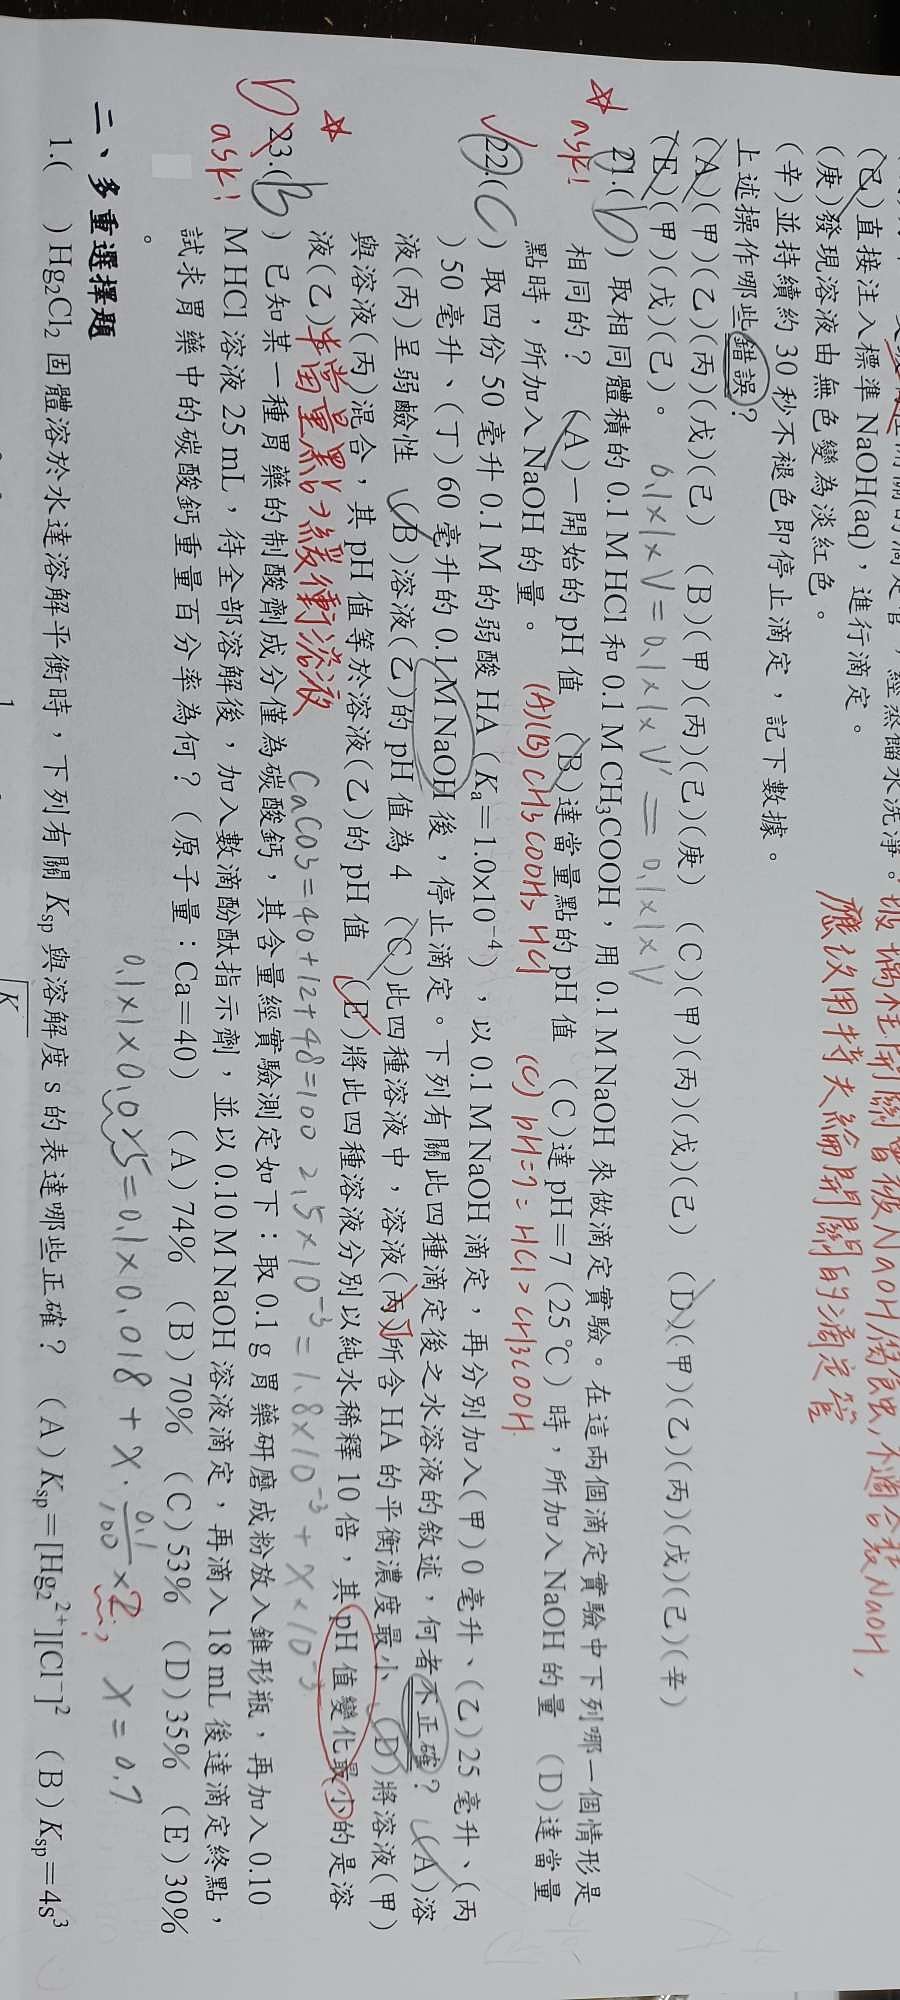 經蒸餾水洗淨。玻璃栓開關會被NaOH腐蝕,不適合裝NaOH,
(己)直接注入標準 NaOH(aq),進行滴定。
應改用特夫綸開關的滴定管
(庚)發現溶液由無色變為淡紅色。
(辛)並持續約 30 秒不褪色即停止滴定,記下數據。
上述操作哪些錯誤?
(A)(甲)(乙)(丙)(戊)(己) (B)(甲)(丙)(己)(庚) (C)(甲)(丙)(戊)(己) (D)(甲)(乙)(丙)(戊)(己)(辛)
(E)(甲)(戊)(己)。 0.1×1×V=0.1×1×V' = 0.1×1×V
☆ 21.(D) 取相同體積的 0.1 M HCl 和 0.1 M CH₃COOH,用 0.1 M NaOH 來做滴定實驗。在這兩個滴定實驗中下列哪一個情形是
ask! 相同的? (A)一開始的 pH 值 (B)達當量點的 pH 值 (C)達 pH=7(25 ℃)時,所加入 NaOH 的量 (D)達當量
點時,所加入 NaOH 的量。 (A)(B) CH₃COOH> HCl (C) pH=7 = HCl > CH₃COOH
22.(C) 取四份 50 毫升 0.1 M 的弱酸 HA(Ka=1.0x10⁻⁴),以 0.1 M NaOH 滴定,再分別加入(甲)0 毫升、(乙)25 毫升、(丙
)50 毫升、(丁)60 毫升的 0.1 M NaOH 後,停止滴定。下列有關此四種滴定後之水溶液的敘述,何者不正確? (A)溶
液(丙)呈弱鹼性 (B)溶液(乙)的 pH 值為 4 (C)此四種溶液中,溶液(丙)所含 HA 的平衡濃度最小 (D)將溶液(甲)
丁
與溶液(丙)混合,其 pH 值等於溶液(乙)的 pH 值 (E)將此四種溶液分別以純水稀釋 10 倍,其 pH 值變化最小的是溶
☆ 液(乙) 半當量點→緩衝溶液
CaCO3=40+12+48=100 2.5×10⁻³=1.8×10⁻³+x×10⁻³
23.(B) 已知某一種胃藥的制酸劑成分僅為碳酸鈣,其含量經實驗測定如下:取 0.1 g 胃藥研磨成粉放入錐形瓶,再加入 0.10
ask! M HCl 溶液 25 mL,待全部溶解後,加入數滴酚酞指示劑,並以 0.10 M NaOH 溶液滴定,再滴入 18 mL 後達滴定終點,
試求胃藥中的碳酸鈣重量百分率為何?(原子量:Ca=40) (A)74% (B)70% (C)53% (D)35% (E)30%
。
0.1×1×0.025=0.1×0.018+x·0.1/100×2, x=0.7
二、多重選擇題
1.( )Hg₂Cl₂ 固體溶於水達溶解平衡時,下列有關 Ksp 與溶解度 s 的表達哪些正確? (A)Ksp=[Hg₂²⁺][Cl⁻]² (B)Ksp=4s³